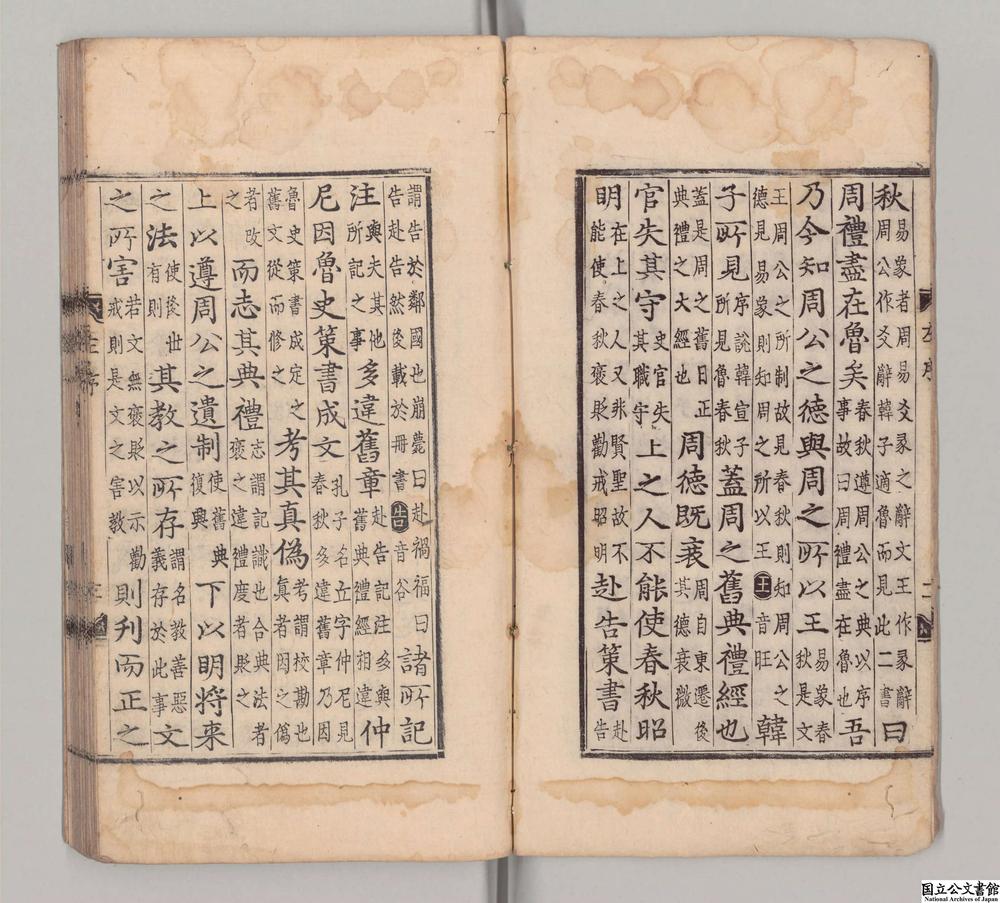 秋易象者周易爻彖之辭文王作彖辭周公作爻辭韓子適魯而見此二書曰
周禮盡在魯矣春秋遵周公之典以序事故曰周禮盡在魯也吾
乃今知周公之德與周之所以王易象春秋是文
王周公之所制故見春秋則知周公之德見易象則知周之所以王王音旺韓
子所見序說韓宣子所見魯春秋蓋周之舊典禮經也
蓋是周之舊日正典禮之大經也周德既衰周自東遷後其德衰微
官失其守史官失其職守上之人不能使春秋昭
明在上之人又非賢聖故不能使春秋褒貶勸戒昭明赴告策書赴告
謂告於鄰國也崩薨曰赴禍福曰告赴告然後載於冊書告音谷諸所記
注與夫其他所記之事多違舊章赴告記注多與舊典禮經相違仲
尼因魯史策書成文孔子名立字仲尼見春秋多違舊章乃因
魯史策書成定之舊文從而修之考其真偽考謂校勘也真者因之偽
者改之而志其典禮志謂記識也合典法者褒之違禮度者貶之
上以遵周公之遺制使舊典復興下以明將来
之法使後世有則其教之所存謂名教善惡義存於此事文
之所害若文無褒貶以示勸戒則是文之害教則刋而正之
左序
二
国立公文書館
National Archives of Japan